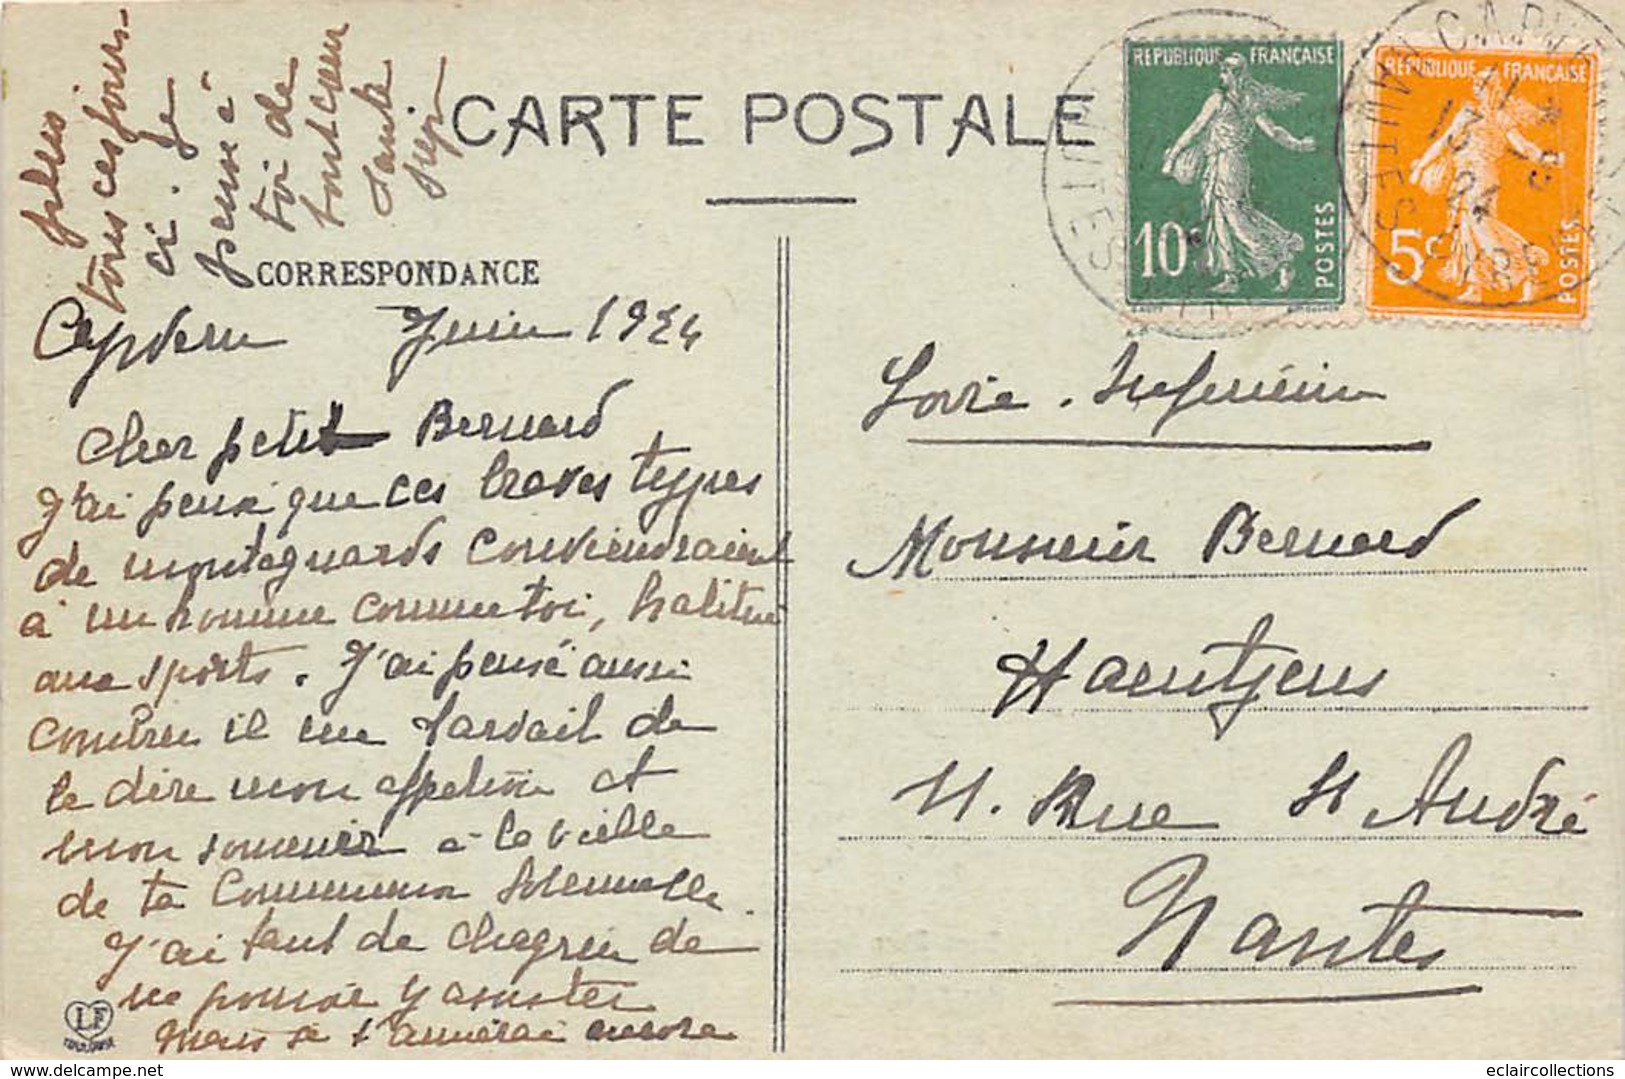 CARTE POSTALE
CORRESPONDANCE
RÉPUBLIQUE FRANÇAISE
10c
POSTES
RÉPUBLIQUE FRANÇAISE
5c
POSTES
Capvern Juin 1924
Cher petit Bernard
J'ai pensé que ces braves types
de montagnards conviendraient
à un homme comme toi, habitué
aux sports. J'ai pensé aussi
combien il me tardait de
te dire mon affection et
mon souvenir à la veille
de ta Communion Solennelle.
J'ai tant de chagrin de
ne pouvoir y assister
Mais je t'aimerai encore
plus
tous ces jours
ci. Je
pense à
toi de
tout cœur
Tante
Loire-Inférieure
Monsieur Bernard
Haentjens
11. Rue St André
Nantes
LF
TOULOUSE
delcampe.net
eclaircollections